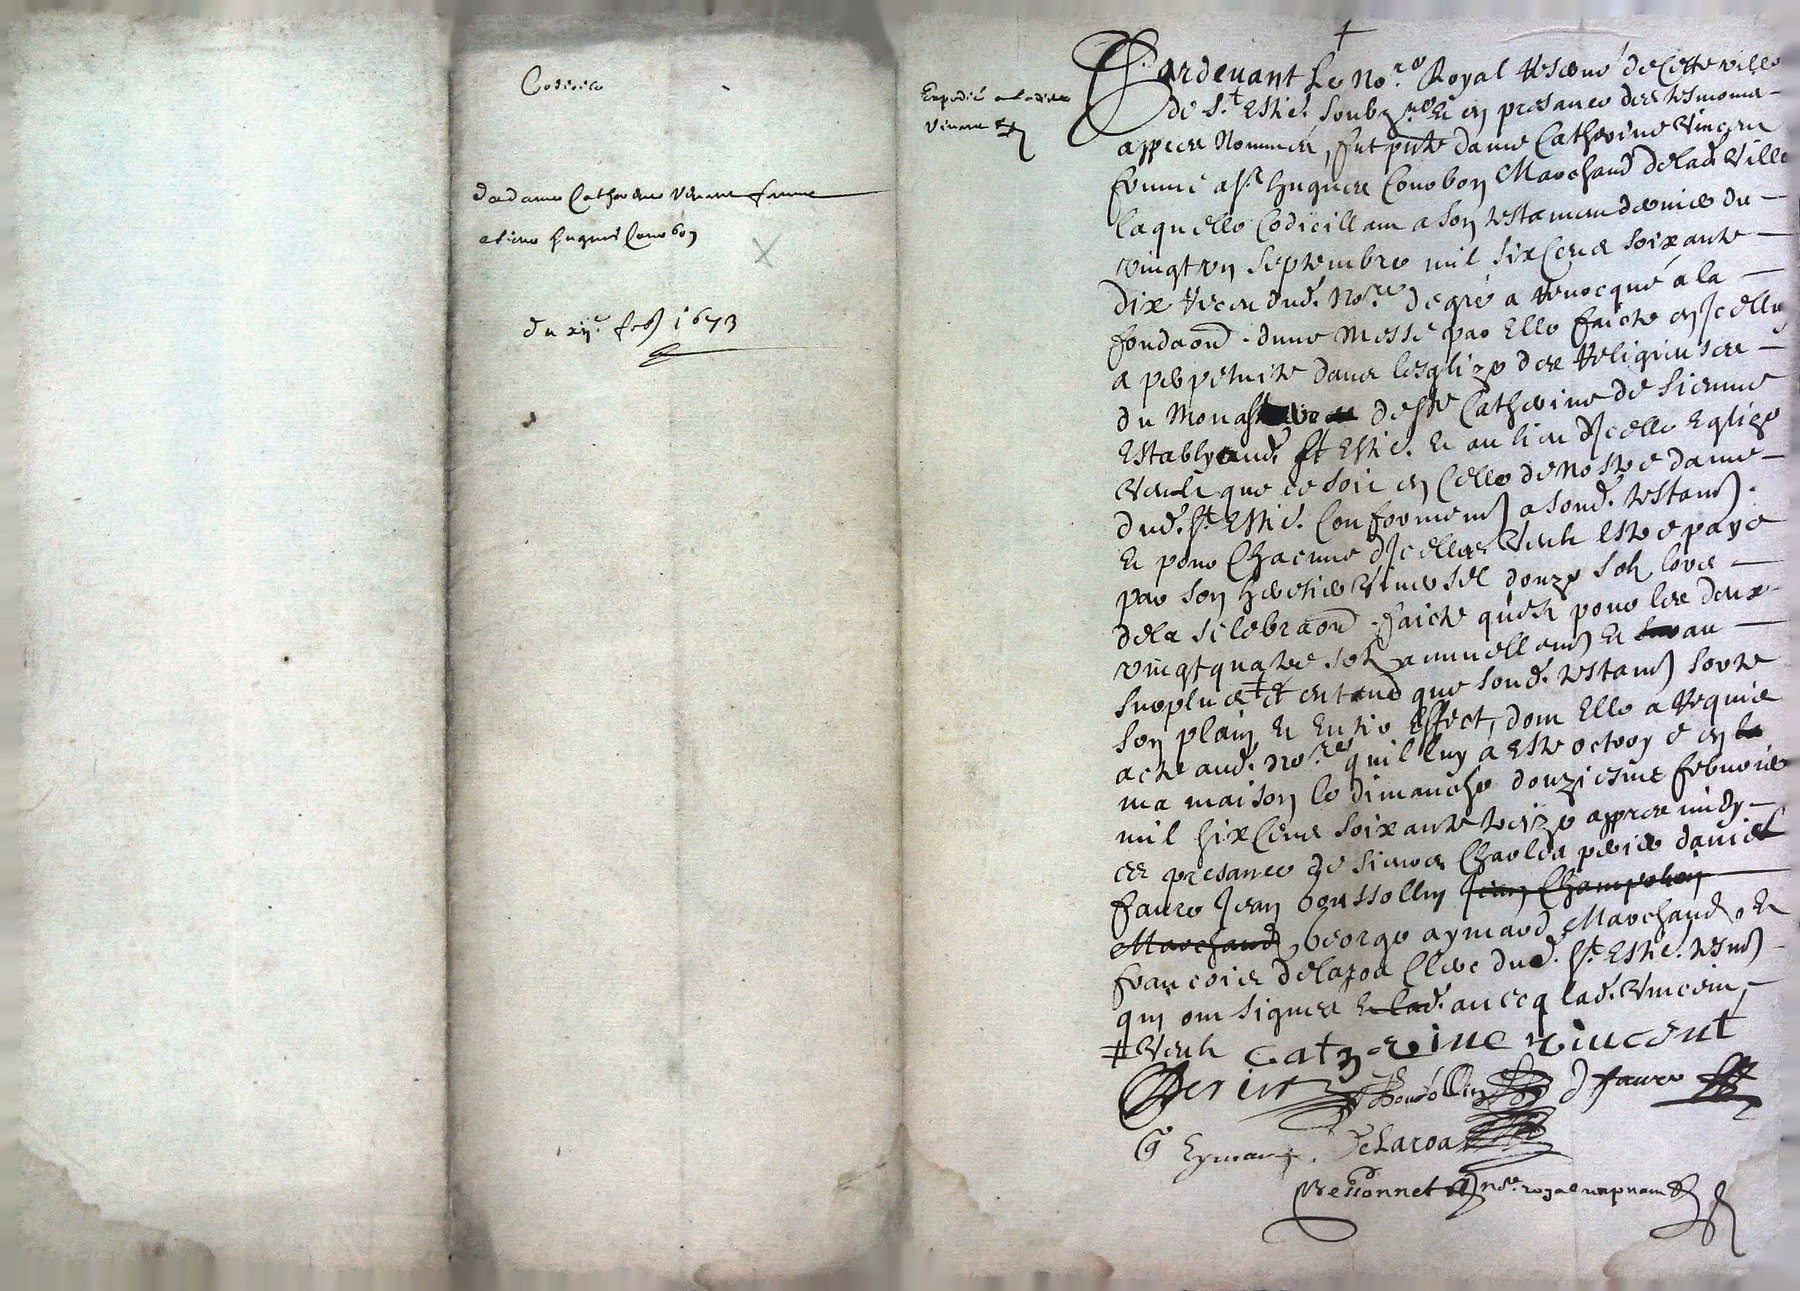 Codicile
de dame Catherine Vincent femme
a sieur hugues Courbon
du xije feb 1673
Expedié a ladite
Vincent
Pardevant Le No.re Royal Reservé de Cette ville
de St Estie. soubz.né Et en presance des tesmoins
appres Nommés, fut pnte dame Catherine Vincent
femme a sr. hugues Courbon Marchand de lad. Ville
laquelle Codicillant a son testament dernier du
vingt un septembre mil six Cens soixante
dix Receu dud. No.re de gré a Revocqué a la
fondaon. dune Messe par Elle faicte en Jcelluy
a perpetuité dans lesglize des Religieuses
du Monastere de ste Catherine de Sienne
Estably aud. St Estie. Et au lieu d'Jcelle Eglize
Veult que ce soit en Celle de Nostre dame
dud. St. Estie. Conformemt a sond. testamt.
Et pour Chacune d'Jcelles Veult Estre payé
par son heretier Universel douze solz lors
de la selebraon. faicte qu'est pour les deux
vingt quatre solz annuellemt Et au
surplus ‡ et entend que sond. testamt sorte
son plain Et Entier Effect, dont Elle a Requis
acte aud. No.re qu'il luy a Este octroyé en
ma maison le dimanche douziesme febvrier
mil six Cens soixante treize appres midy
es presance de sieurs Charles perier daniel
faure Jean boussollin Jean Champolion
Marchand, George aymard Marchand, Et
francois delaroa Clerc dud. St. Estie. tesmt
qui ont signés Et lad. avecq lad. Vincent,
‡ Veult Catherine vincent
Perier Boussollin D faure
G Eymard. DeLaroa
Bessonnet No.re royal reservé